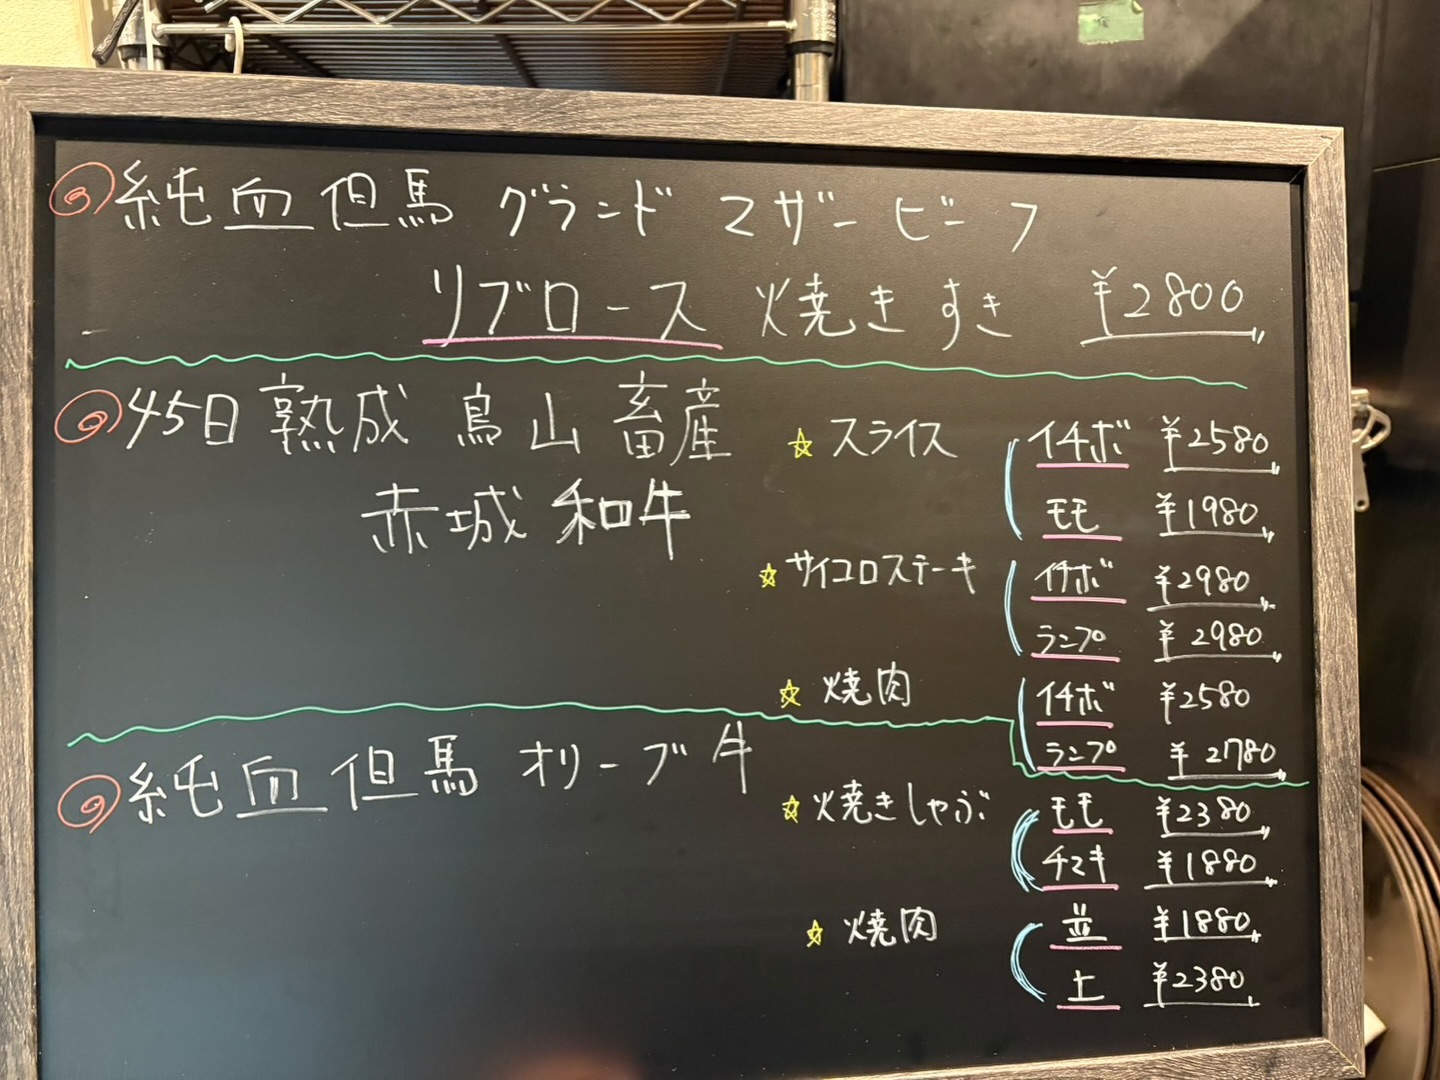 純血但馬 グランド マザー ビーフ
リブロース 焼きすき ¥2800
45日熟成 鳥山畜産
赤城和牛
スライス イチボ ¥2580
モモ ¥1980
サイコロステーキ イチボ ¥2980
ランプ ¥2980
焼肉 イチボ ¥2580
ランプ ¥2780
純血但馬 オリーブ牛
焼きしゃぶ モモ ¥2380
チマキ ¥1880
焼肉 並 ¥1880
上 ¥2380